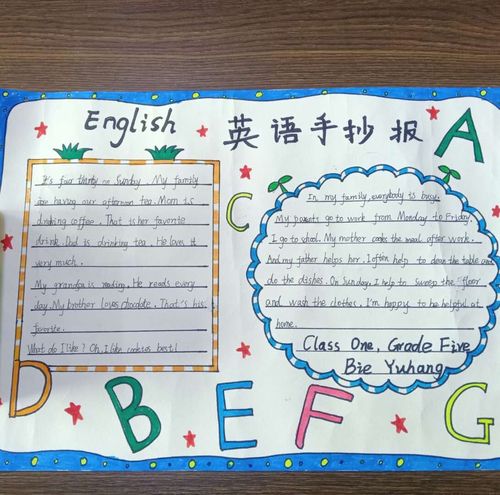 English 英语手抄报
A
It's four thirty on Sunday. My family
are having our afternoon tea. Mom is
drinking coffee. That is her favorite
drink. Dad is drinking tea. He loves it
very much.
My grandpa is reading. He reads every
day. My brother loves chocolate. That's his
favorite.
What do I like? Oh, I like cookies best!
C
In my family, everybody is busy.
My parents go to work from Monday to Friday.
I go to school. My mother cooks the meal after work.
And my father helps her. I often help to clean the table and
do the dishes. On Sunday, I help to sweep the floor
and wash the clothes. I'm happy to be helpful at
home.
Class One, Grade Five
Bie Yuhang
D
B
E
F
G